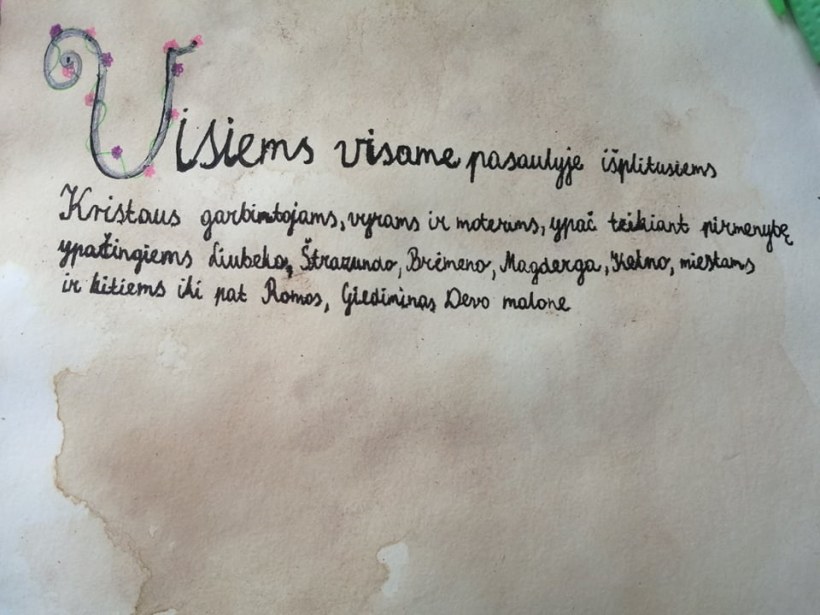 Visiems visame pasaulyje išplitusiems
Kristaus garbintojams, vyrams ir moterims, ypač teikiant pirmenybę
ypatingiems Liubeko, Štrazundo, Bremeno, Magderga, Kelno, miestams
ir kitiems iki pat Romos, Giediminas Devo malone